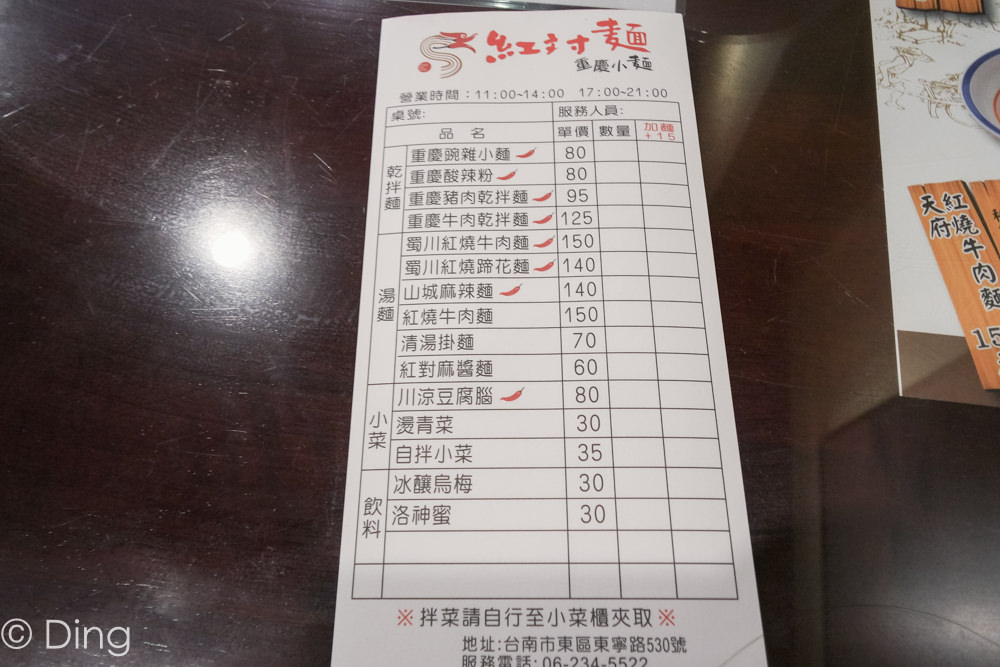 紅対麵
重慶小麵
營業時間：11:00~14:00 17:00~21:00
桌號: 服務人員:
品名 單價 數量 加麵+15
乾拌麵
重慶豌雜小麵 80
重慶酸辣粉 80
重慶豬肉乾拌麵 95
重慶牛肉乾拌麵 125
湯麵
蜀川紅燒牛肉麵 150
蜀川紅燒蹄花麵 140
山城麻辣麵 140
紅燒牛肉麵 150
清湯掛麵 70
紅對麻醬麵 60
小菜
川涼豆腐腦 80
燙青菜 30
自拌小菜 35
飲料
冰釀烏梅 30
洛神蜜 30
※拌菜請自行至小菜櫃夾取※
地址:台南市東區東寧路530號
服務電話: 06-234-5522
天府
紅燒牛肉麵
15
© Ding